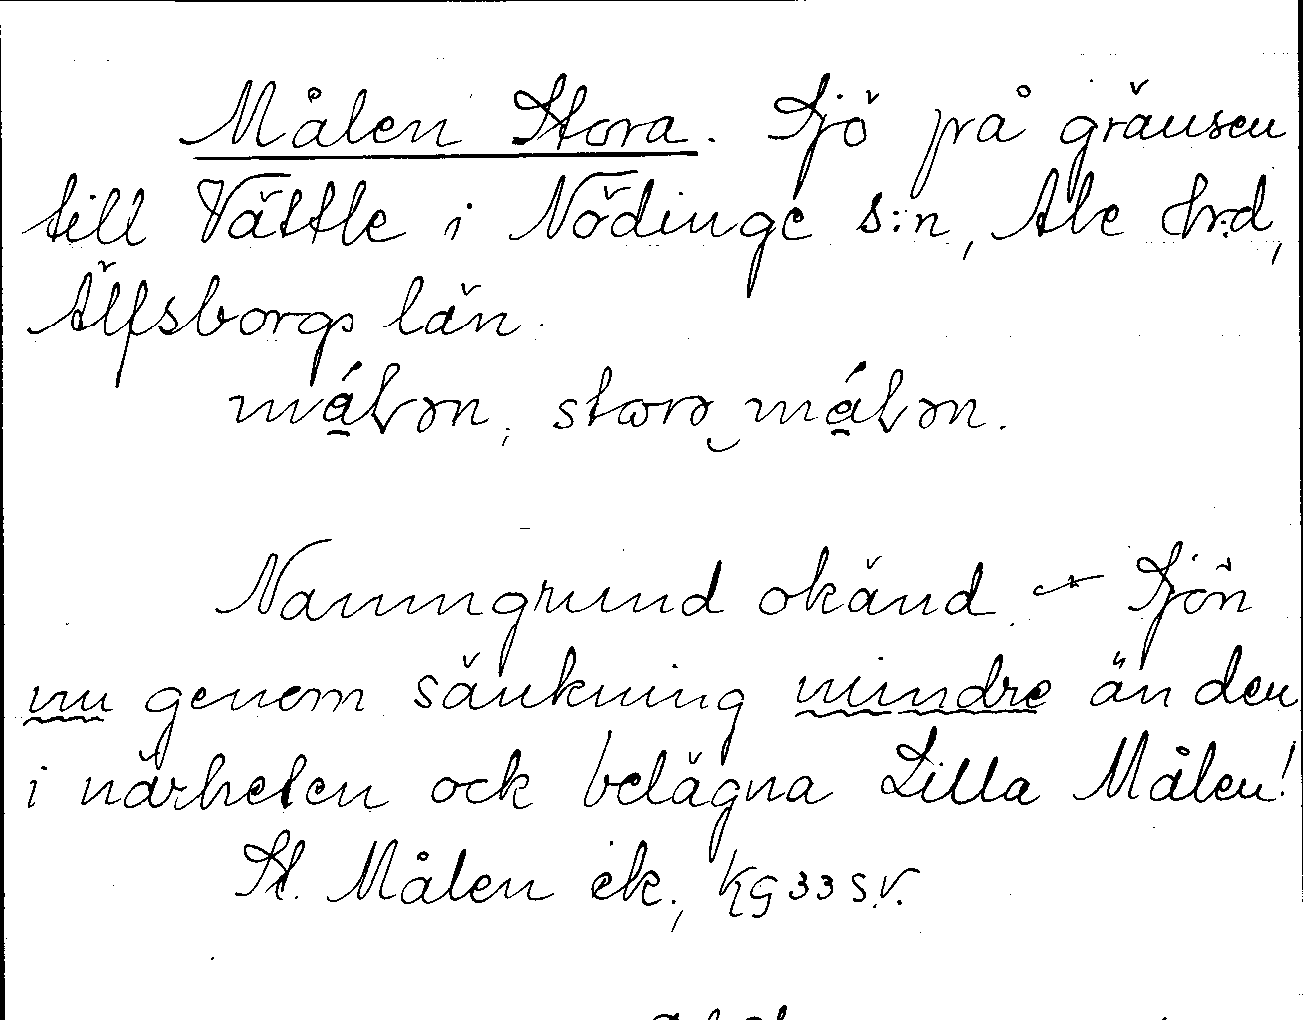 Målen Stora. Sjö på gränsen
till Vättle i Nödinge s:n, Ale hrd,
Älfsborgs län.
målən, storə målən.
Namngrund okänd. – Sjön
nu genom sänkning mindre än den
i närheten ock belägna Lilla Målen!
St. Målen ek., KG 33 S.V.